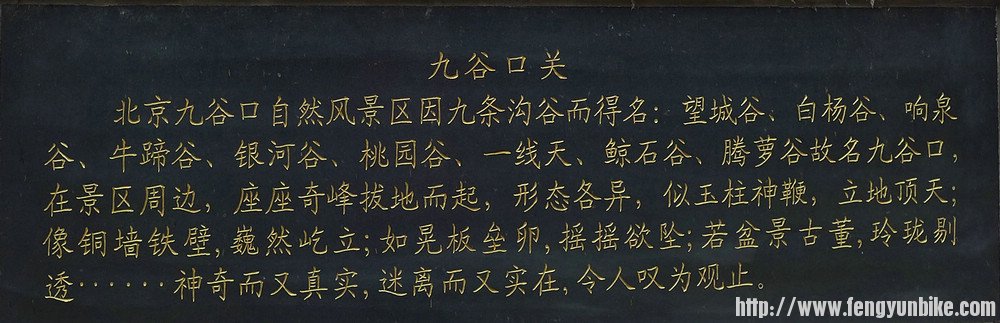 九谷口关
北京九谷口自然风景区因九条沟谷而得名：望城谷、白杨谷、响泉
谷、牛蹄谷、银河谷、桃园谷、一线天、鲸石谷、腾萝谷故名九谷口，
在景区周边，座座奇峰拔地而起，形态各异，似玉柱神鞭，立地顶天；
像铜墙铁壁，巍然屹立；如晃板垒卵，摇摇欲坠；若盆景古董，玲珑剔
透……神奇而又真实，迷离而又实在，令人叹为观止。
http://www.fengyunbike.com